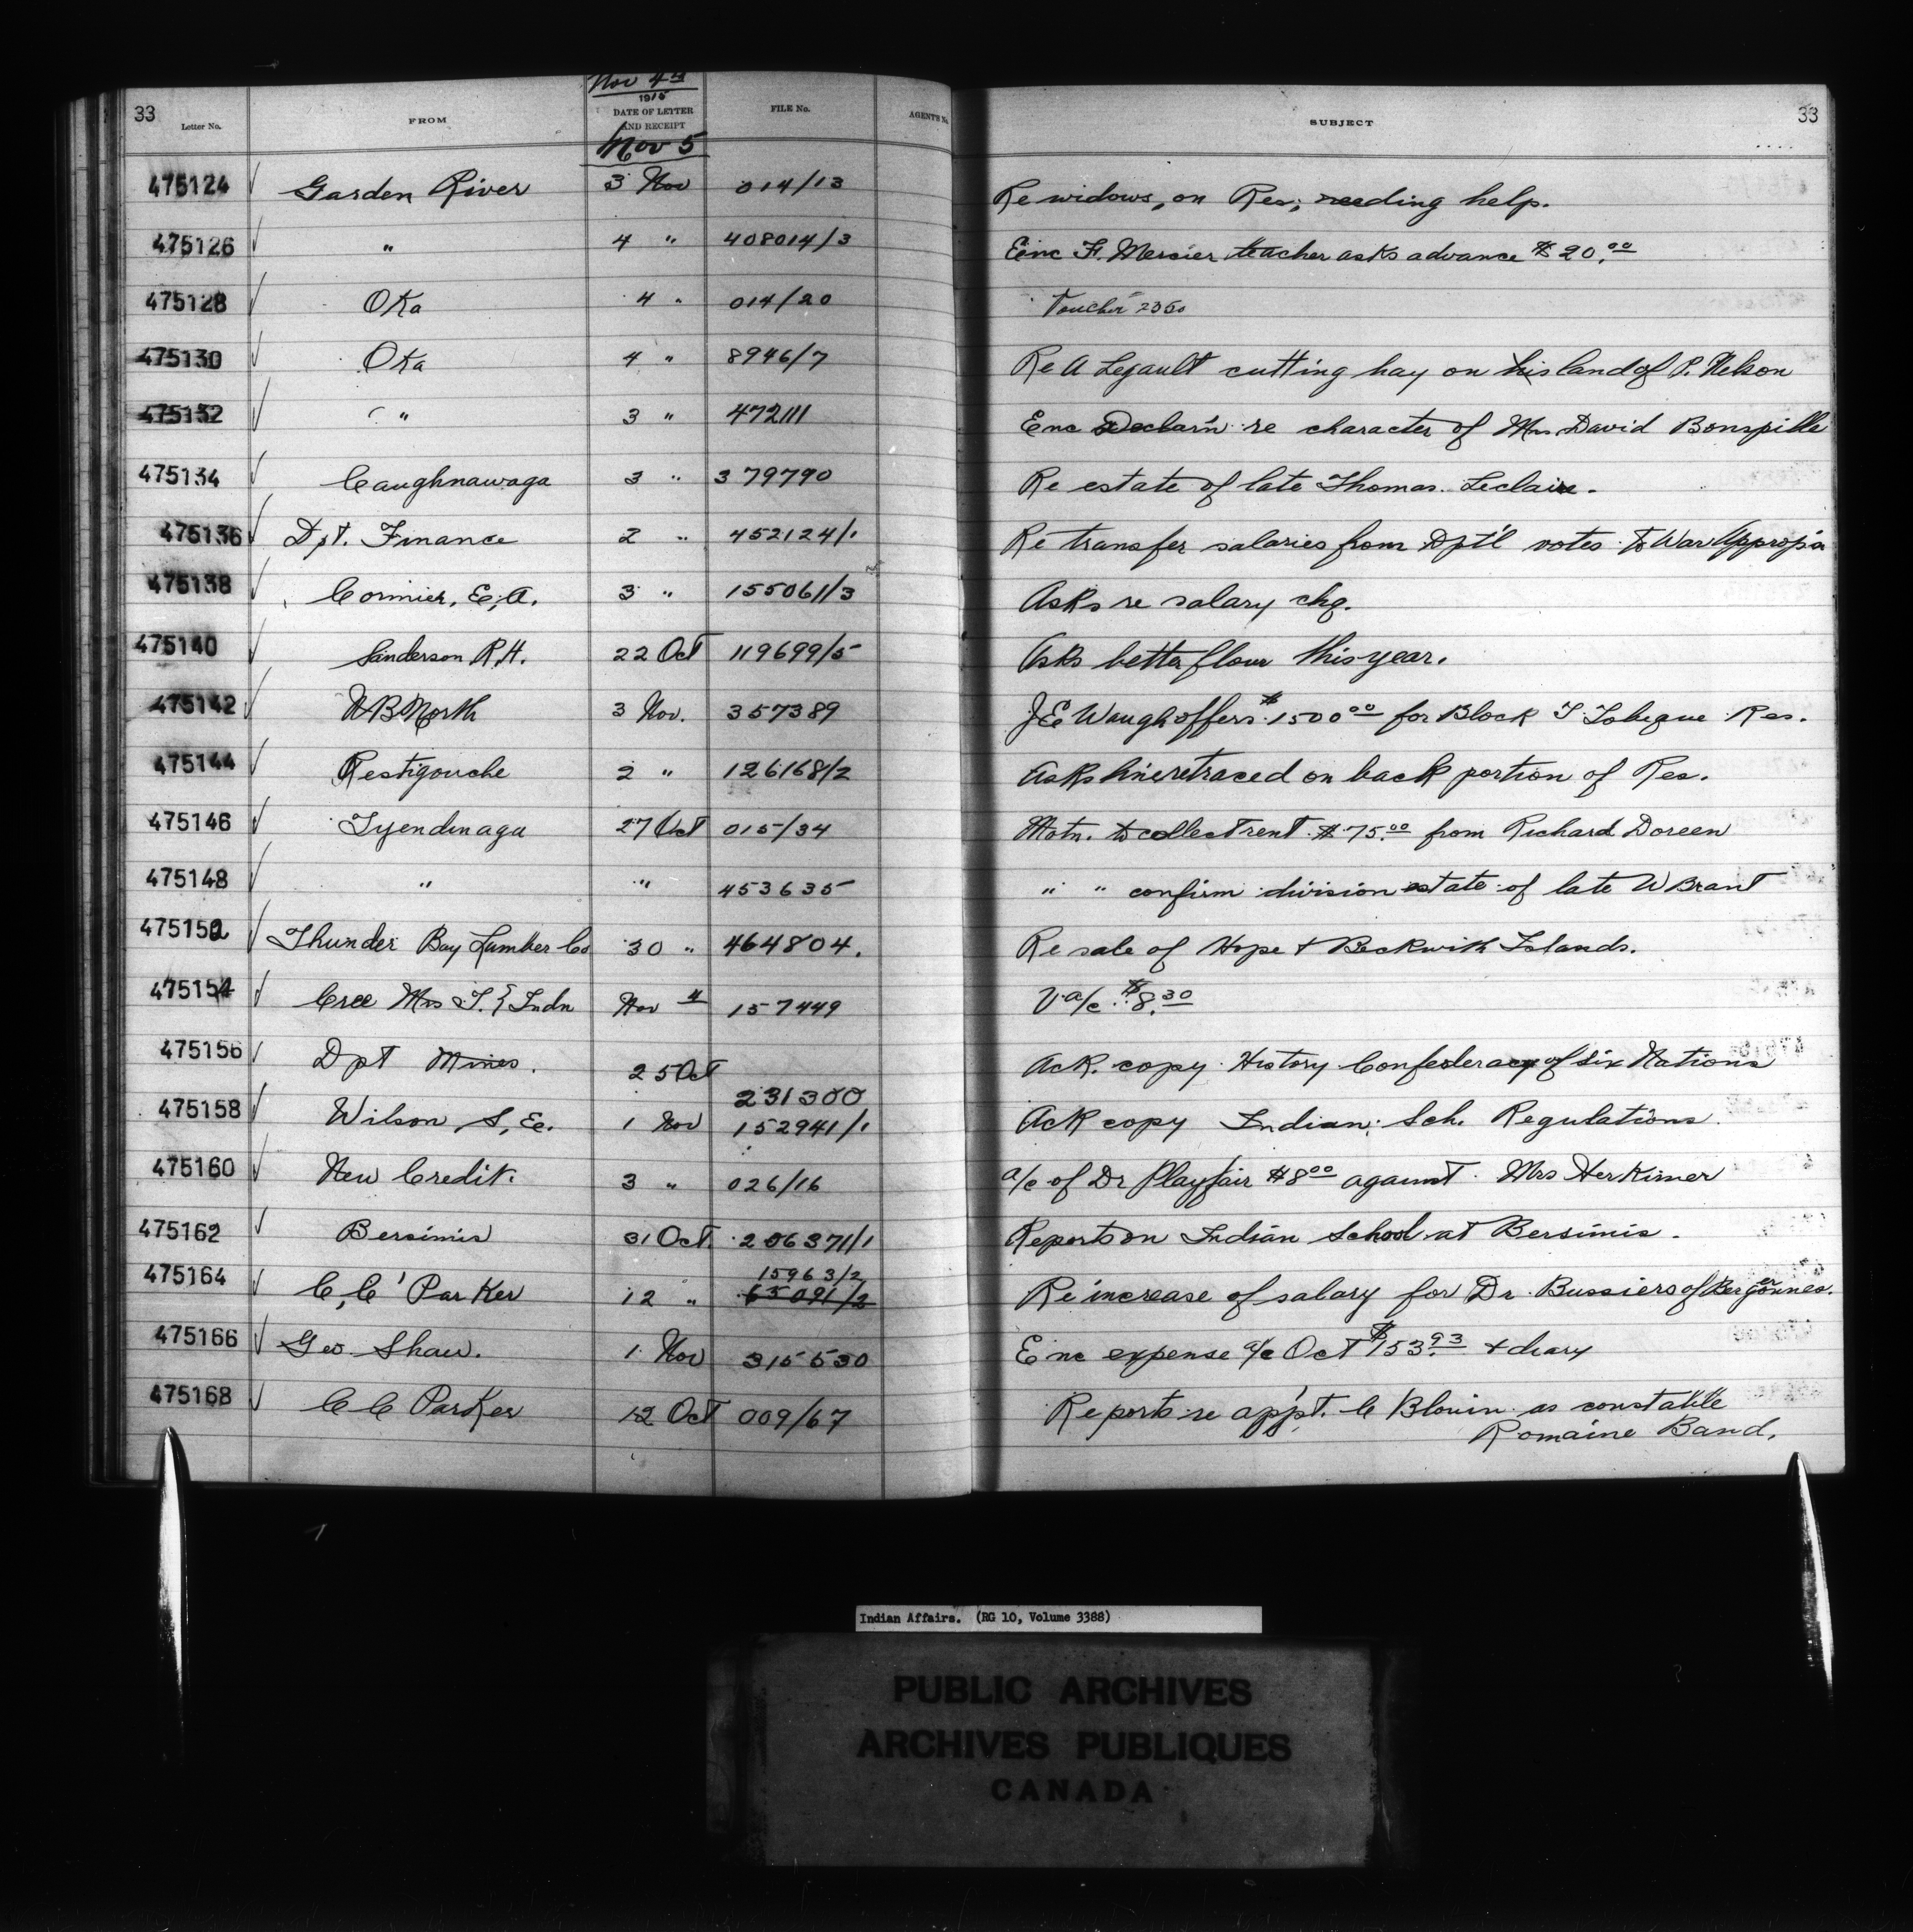 Nov 4th
1915
33 Letter No. FROM DATE OF LETTER AND RECEIPT FILE No. AGENTS No. SUBJECT 33
Nov 5
475124 Garden River 3 Nov 014/13 Re widows, on Res; needing help.
475126 " 4 " 408014/3 Enc F. Mercier teacher asks advance $20.00
475128 Oka 4 " 014/20 Voucher 2360
475130 Oka 4 " 8946/7 Re A Legault cutting hay on his land of P. Nelson
475132 " 3 " 472111 Enc Declar'n re character of Mrs David Bonspille
475134 Caughnawaga 3 " 379790 Re estate of late Thomas Leclaire.
475136 Dpt. Finance 2 " 452124/1 Re transfer salaries from Dpt'l votes to War Approp'n
475138 Cormier, E. A. 3 " 155061/3 Asks re salary chq.
475140 Sanderson R.H. 22 Oct 119699/5 Asks better flour this year.
475142 N B North 3 Nov. 357389 J E Waugh offers $1500.00 for Block I Tobique Res.
475144 Restigouche 2 " 126168/2 Asks line retraced on back portion of Res.
475146 Tyendinaga 27 Oct 015/34 Motn. to collect rent $75.00 from Richard Doreen
475148 " " 453635 " " confirm division estate of late W Brant
475152 Thunder Bay Lumber Co 30 " 464804. Re sale of Hope + Beckwith Islands.
475154 Cree Mrs T. } Indn Nov 4 157449 V a/c $8.30
475156 Dpt Mines. 25 Oct 231300 Ack. copy History Confederacy of Six Nations
475158 Wilson, S, E. 1 Nov 152941/1 Ack copy Indian Sch. Regulations.
475160 New Credit. 3 " 026/16 a/c of Dr Playfair $8.00 against Mrs Herkimer
475162 Bersimis 31 Oct. 206371/1 Reports on Indian School at Bersimis.
15963/2
475164 C, C Parker 12 " 65091/2 Re increase of salary for Dr. Bussiers of Bergeronnes.
475166 Geo Shaw. 1 Nov 315530 Enc expense a/c Oct $153.93 + diary
475168 C C Parker 12 Oct 009/67 Reports re app't. C Blouin as constable
Romaine Band.
Indian Affairs. (RG 10, Volume 3388)
PUBLIC ARCHIVES
ARCHIVES PUBLIQUES
CANADA